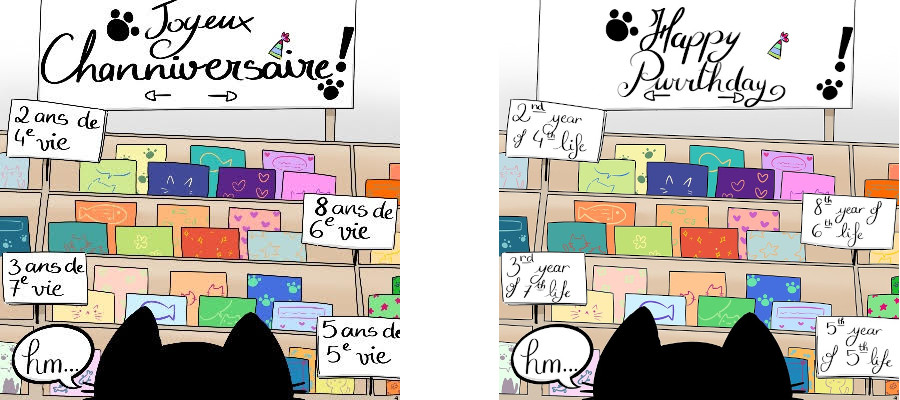 Joyeux
Channiversaire!
2 ans de
4e vie
8 ans de
6e vie
3 ans de
7e vie
5 ans de
5e vie
hm...
Happy
Purrthday!
2nd year
of 4th life
8th year of
6th life
3rd year
of 7th life
5th year
of 5th life
hm...